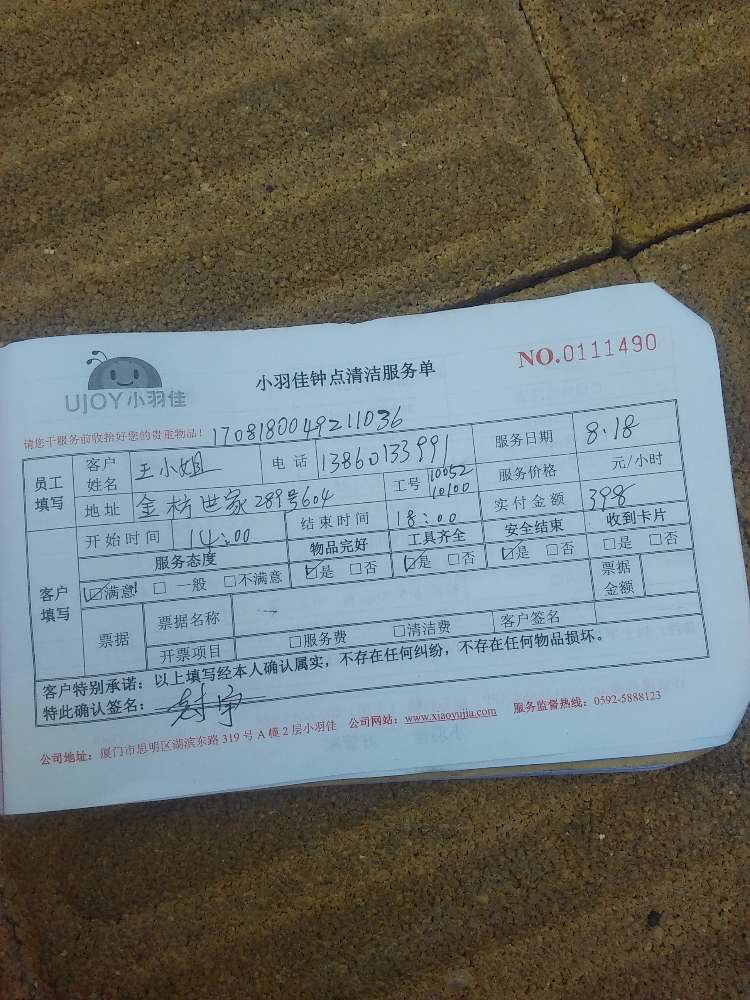 UJOY小羽佳
小羽佳钟点清洁服务单
NO.0111490
请您于服务前收拾好您的贵重物品！ 1708180049211036
员工填写 客户姓名 王小姐 电话 13860133991 服务日期 8.18
地址 金枋世家289号604 工号 10052 10100 服务价格 元/小时
客户填写 开始时间 14:00 结束时间 18:00 实付金额 398
服务态度 物品完好 工具齐全 安全结束 收到卡片
☑满意 □一般 □不满意 ☑是 □否 ☑是 □否 ☑是 □否 □是 □否
票据 票据名称 票据金额
开票项目 □服务费 □清洁费 客户签名
客户特别承诺：以上填写经本人确认属实，不存在任何纠纷，不存在任何物品损坏。
特此确认签名：
公司地址：厦门市思明区湖滨东路319号A幢2层小羽佳 公司网站：www.xiaoyujia.com 服务监督热线：0592-5888123